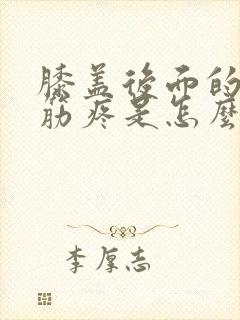 膝盖後面的
筋疼是怎麼
李厚志